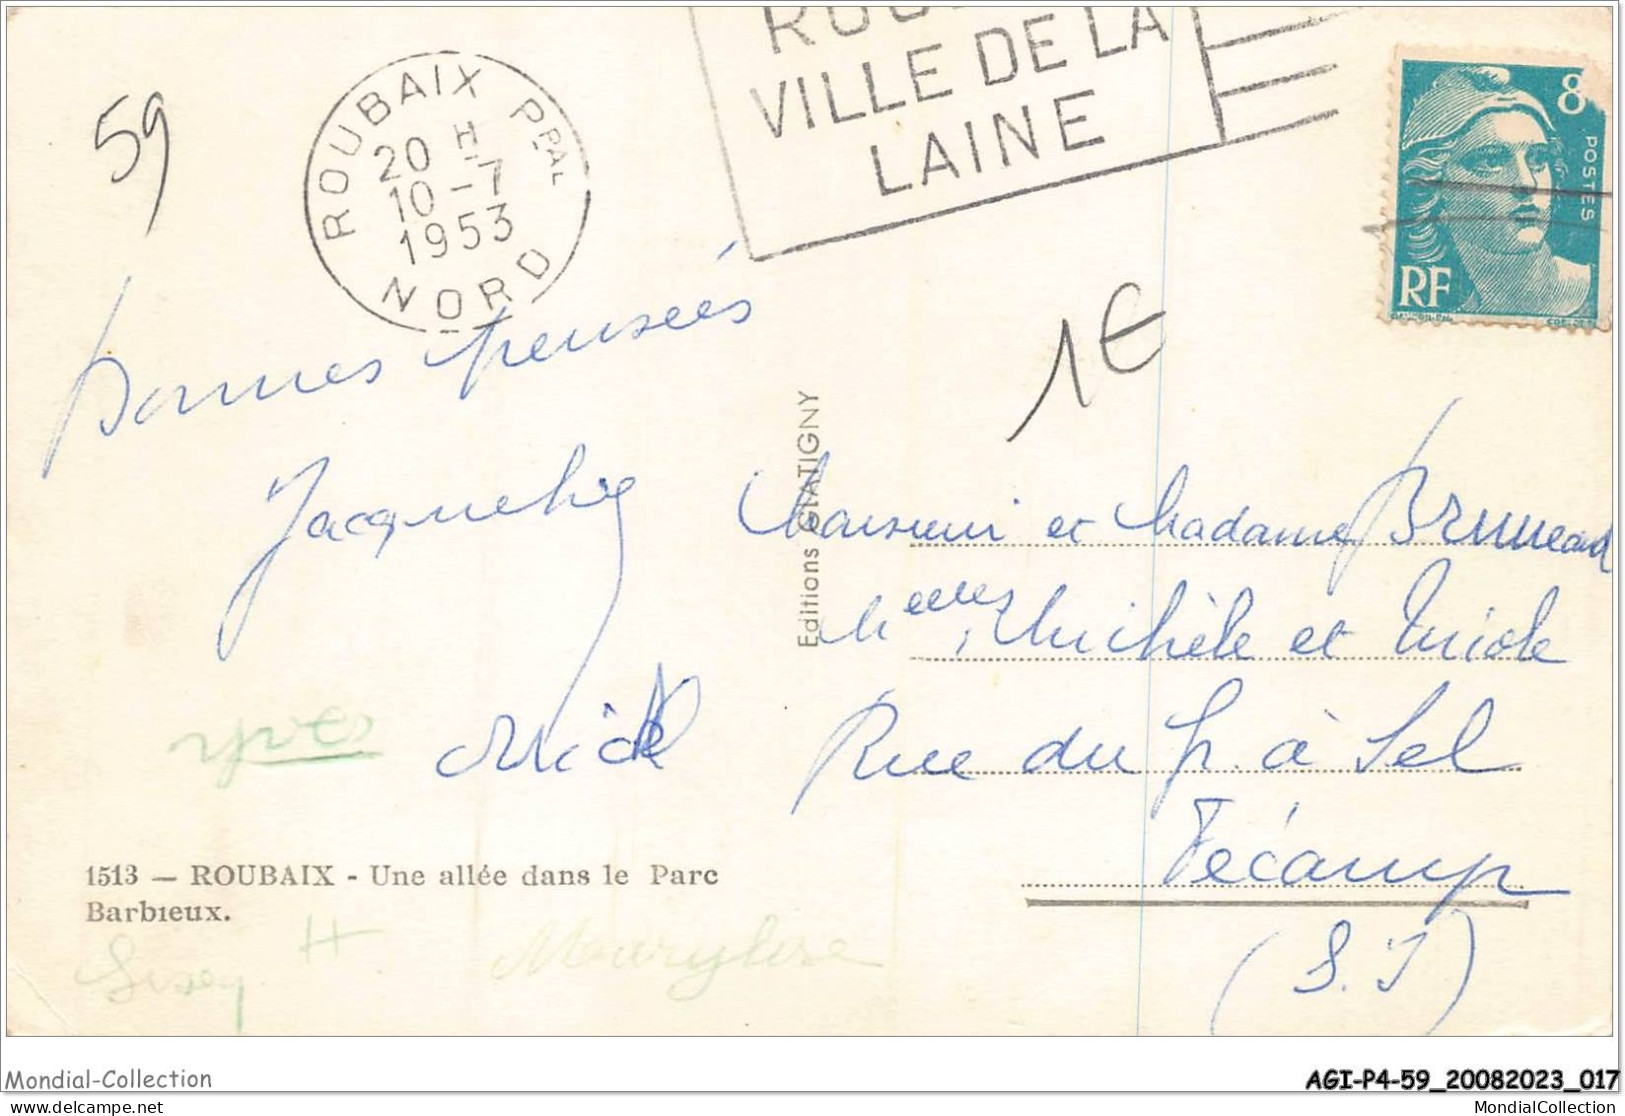 59
ROUBAIX PPAL
20 H
10-7
1953
NORD
VILLE DE LA
LAINE
8
POSTES
RF
1€
Bonnes pensées
Jacqueline
Yves
Editions GLATIGNY
Monsieur et Madame Bruneau
Melles Michèle et
Rue du P. à Sel
Fécamp
(S.I)
1513 — ROUBAIX - Une allée dans le Parc
Barbieux.
H
Mondial-Collection
AGI-P4-59_20082023_017
www.delcampe.net
MondialCollection